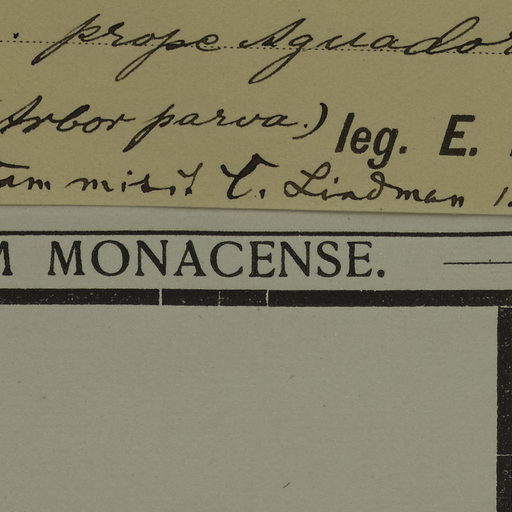 prope Aguador
(Arbor parva.) leg. E.
misit C. Lindman
M MONACENSE.